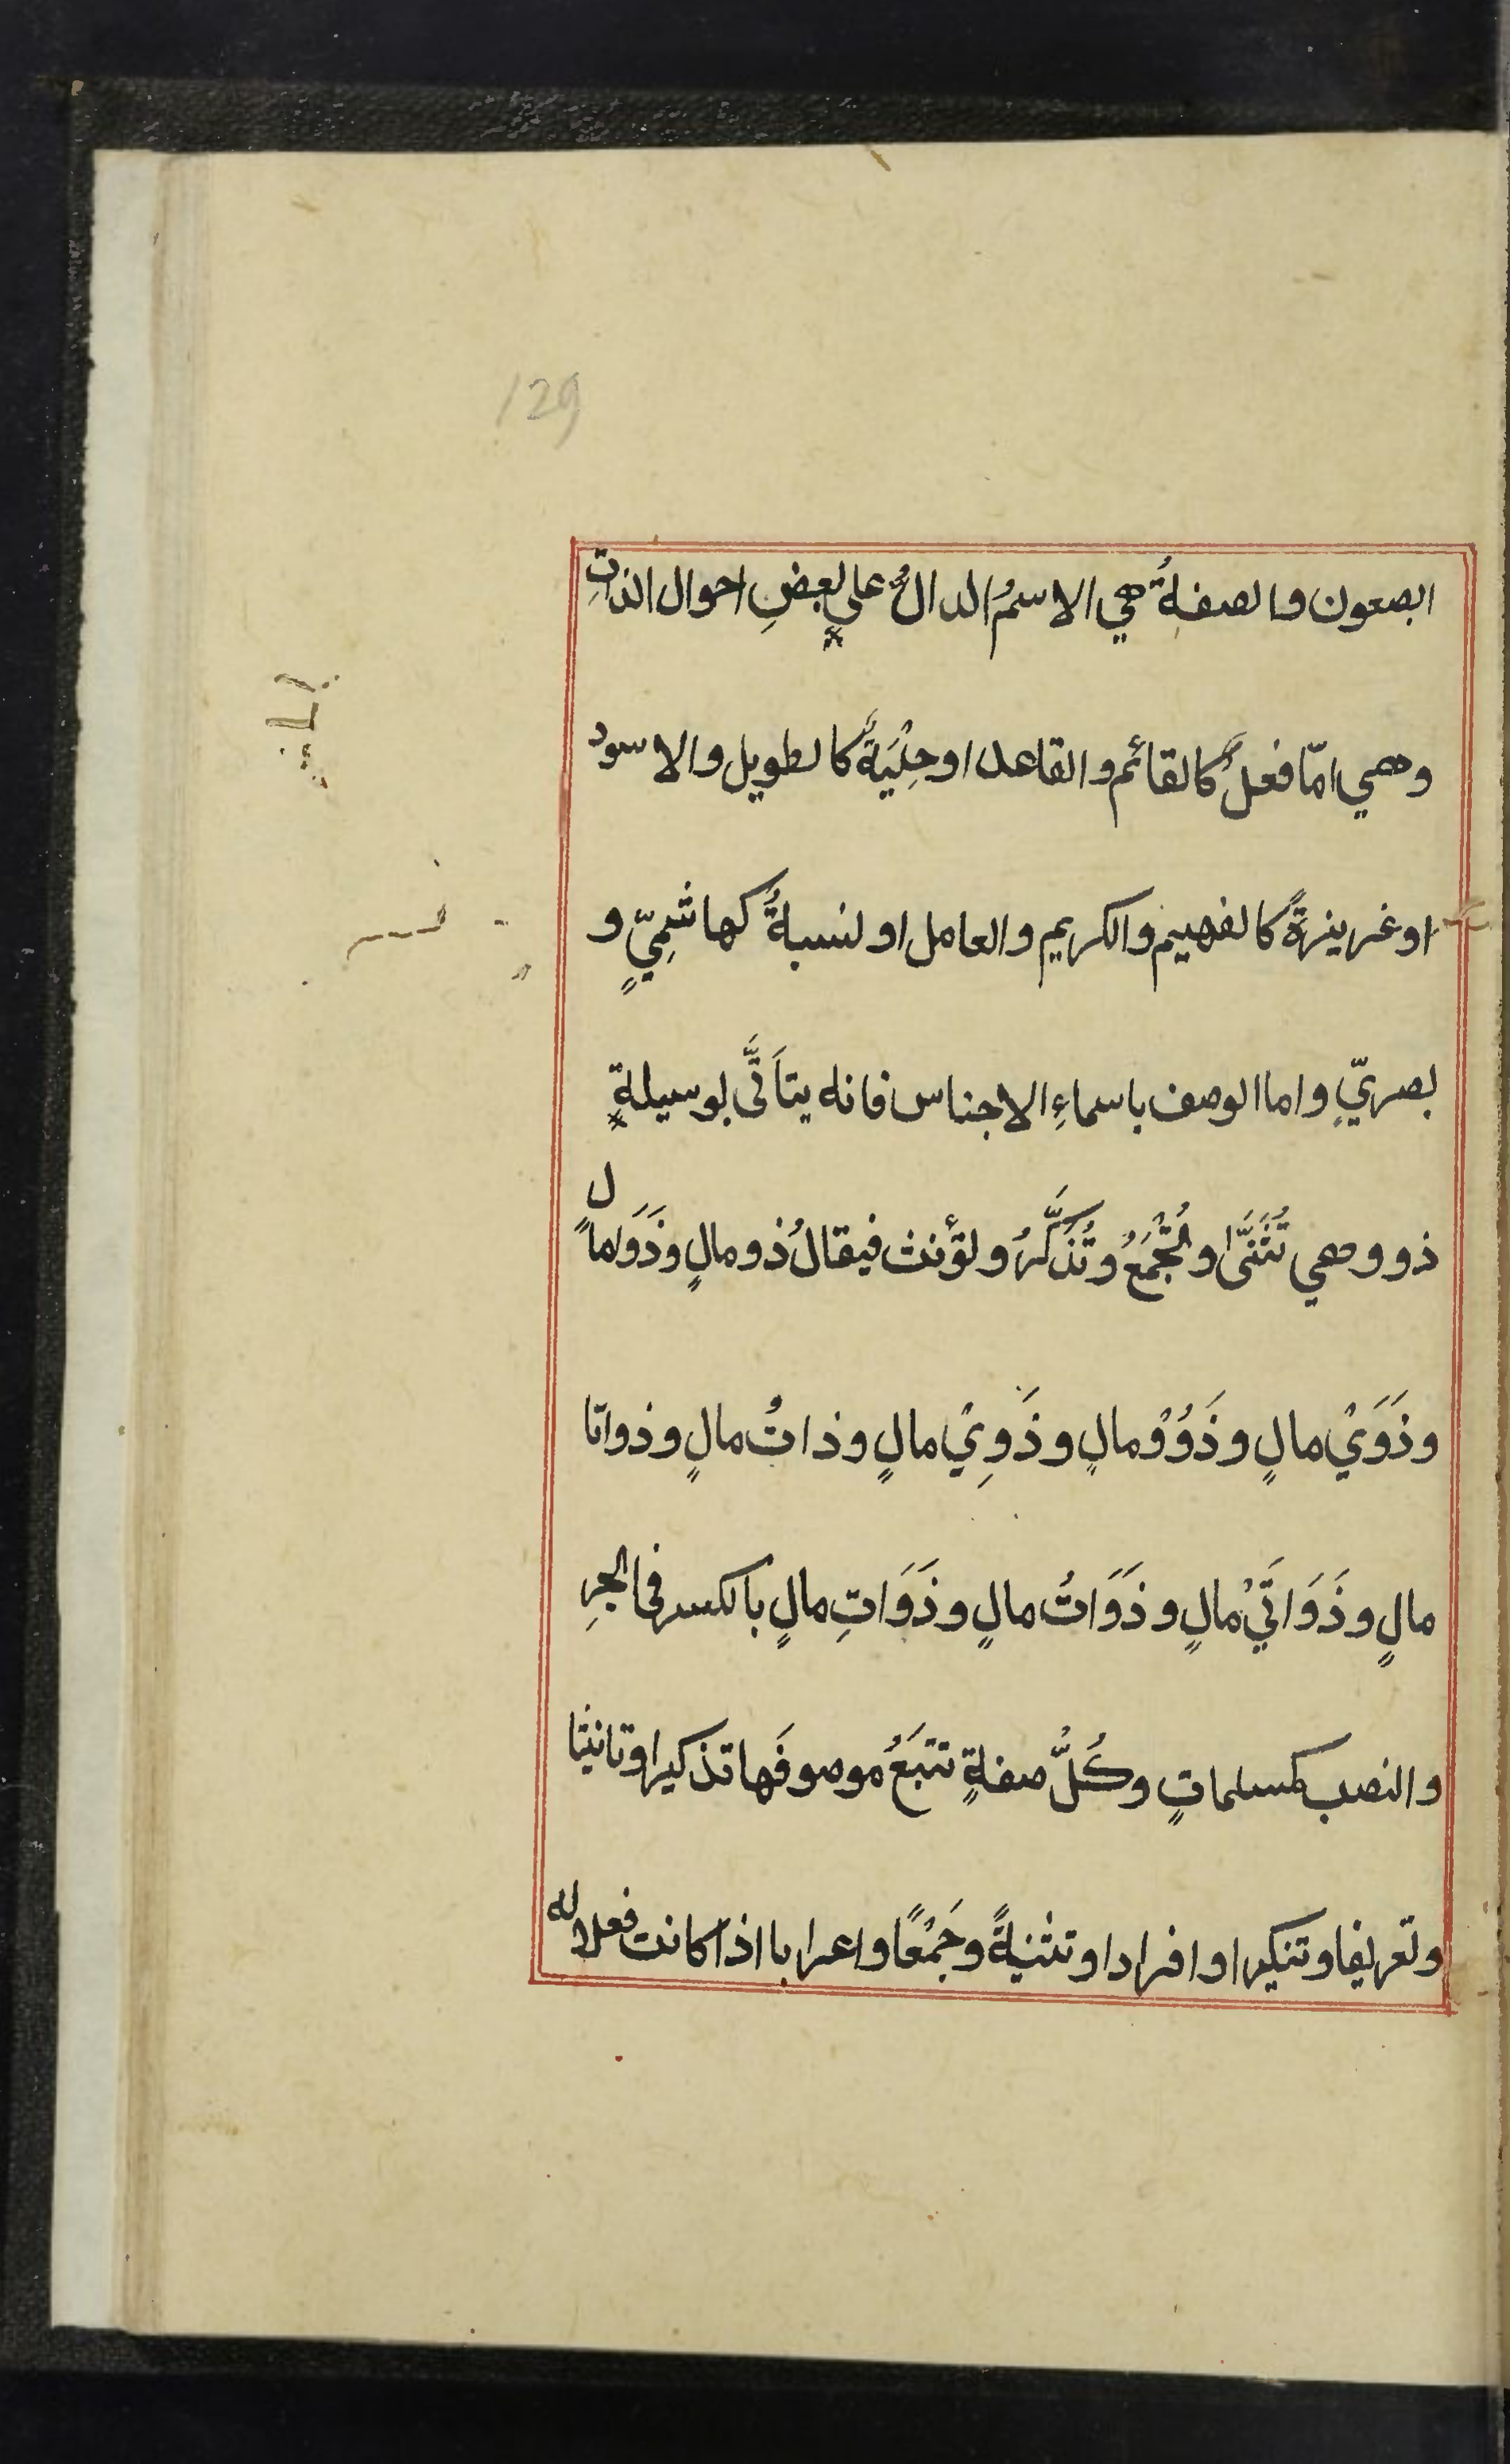 129
ابصعون والصفةُ هي الاسمُ الدالُّ على بعضِ احوال الذاتِ
وهي امّا فعلٌ كالقائم والقاعد او حِلْيَةٌ كالطويل والاسود
او غريزةً كالفهيم والكريم والعامل او نسبةٌ كهاشمِيٍّ و
بصريٍّ واما الوصف باسماءِ الاجناس فانه يتأتَّى بوسيلةٍ
ذو وهي تُثَنَّى وتُجْمَعُ وتُذَكَّرُ وتؤنث فيقالُ ذو مالٍ وذَوَا مالٍ
وذَوَيْ مالٍ وذَوُوْ مالٍ وذَوِيْ مالٍ وذاتُ مالٍ وذواتا
مالٍ وذَوَاتَيْ مالٍ وذَوَاتُ مالٍ وذَوَاتِ مالٍ بالكسر في الجرِ
والنصب كمسلماتٍ وكُلُّ صفةٍ تتبَعُ موصوفَها تذكيرا وتانيثا
وتعريفا وتنكيرا وافرادا وتثنيةً وجَمْعًا واعرابا اذا كانت فعلا له